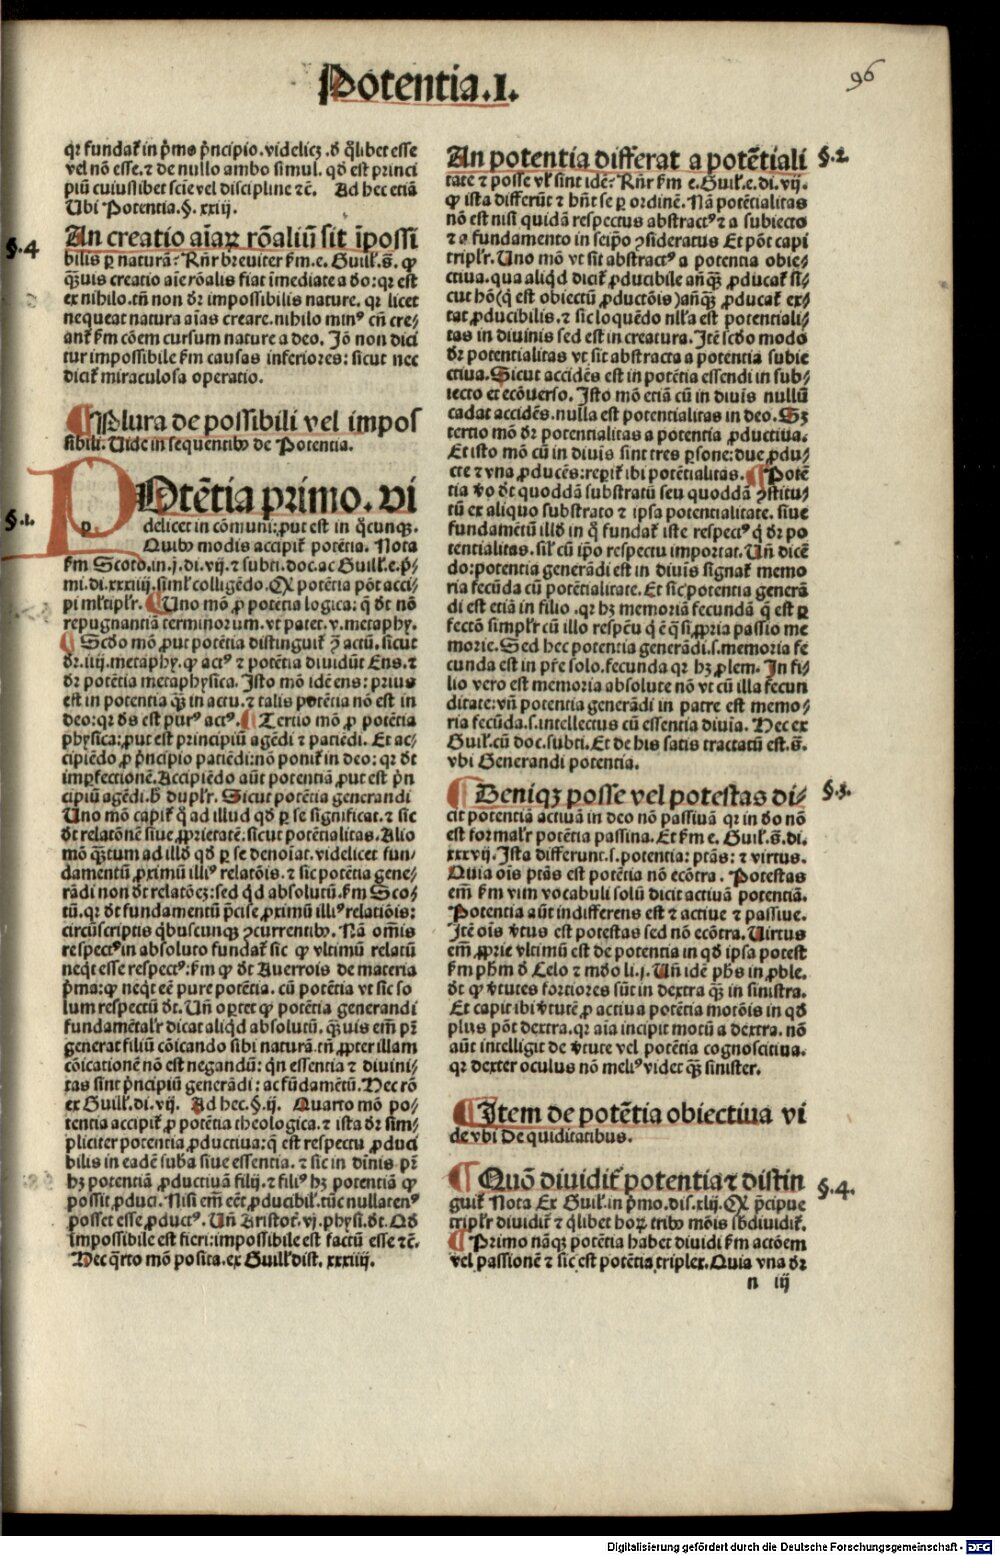 Potentia.I.
96
qꝛ fundat᷑ in p̄mo p̄ncipio.videlicꝫ.ꝺ q̄libet esse
vel nō esse.⁊ de nullo ambo simul. qđ est princi
piū cuiuslibet scīe vel discipline ⁊c̄. Ad hec etiā
Ubi Potentia.§.xxiij.
§.4
An creatio aīaꝝ rōaliū sit īpossi
bilis ꝑ naturā: Rn̄r breviter ẜm.e. Guilł.s̄. ꝙ
q̄ꝫuis creatio aīe rōalis fiat īmediate a deo: qꝛ est
ex nihilo.tn̄ non dꝛ impossibilis nature. qꝛ licet
nequeat natura aīas creare.nihilo minꝰ cū cre⸗
ant᷑ ẜm cōem cursum nature a deo. Jō non dici
tur impossibile ẜm causas inferiores: sicut nec
dicit᷑ miraculosa operatio.
¶Plura de possibili vel impos
sibili. Uide in sequentibꝰ de Potentia.
§.1.
POtētia primo. vi
delicet in cōmuni: ꝓut est in q̄cunqꝫ.
Quibꝰ modis accipit᷑ potētia. Nota
ẜm Scotū.in.j.di.vij.⁊ subti.doc.ac Guilł.e.p̄⸗
mi.di.xxxiiij.simł colligēdo. Qꝫ potētia pōt acci⸗
pi mł'tiplr̄. ¶Uno mō ꝓ potētia logica: q̄ dꝛ nō
repugnantiā terminorum. vt patet. v. metaphy.
¶Scđo mō ꝓut potētia distinguit᷑ ꝯ̄ actū. sicut
dꝛ.iiij.metaphy. ꝙ actꝰ ⁊ potētia dividūt Ens.⁊
dꝛ potētia metaphysica. Isto mō idē ens: prius
est in potentia q̄ꝫ in actu.⁊ talis potētia nō est in
deo: qꝛ ds̄ est purꝰ actꝰ. ¶Tertio mō ꝓ potētia
physica: ꝓut est principiū agēdi ⁊ patiēdi. Et ac⸗
cipiēdo ꝓ p̄ncipio patiēdi: nō ponit᷑ in deo: qꝛ dꝛ
imperfectionē. Accipiēdo aūt potentiā ꝓut est p̄n
cipiū agēdi. ħ duplr̄. Sicut potētia generandi
Uno mō capit᷑ q̄ ad illud qđ ꝑ se significat.⁊ sic
dꝛ relatōnē siue ꝓprietatē: sicut potētialitas. Alio
mō q̄ꝫtum ad illđ qđ ꝑ se denoīat. videlicet fun⸗
damentū ꝓximū illiꝰ relatōis.⁊ sic potētia gene⸗
rādi non dꝛ relatōeꝫ: sed qđ absolutū. ẜm Sco⸗
tū. qꝛ dꝛ fundamentū p̄cise ꝓximū illiꝰ relatiōis:
circūscriptis qꝫbuscunqꝫ ꝯcurrentibꝰ. Nā omīs
respectꝰ in absoluto fundat᷑ sic ꝙ vltimū relatū
neqt esse respectꝰ: ẜm ꝙ dꝛ Auerrois de materia
p̄ma: ꝙ neqt eē pure potētia. cū potētia vt sic so
lum respectū dꝛ. Un̄ oꝑtet ꝙ potētia generandi
fundamētalr̄ dicat aliqđ absolutū. q̄ꝫuis em̄ pr̄
generat filiū cōicando sibi naturā. tn̄ ꝓpter illam
cōicationē nō est negandū: qn̄ essentia ⁊ diuini⸗
tas sint p̄ncipiū generādi: ac fūdamētū. Hec rō
ex Guilł.di.vij. Ad hec.§.ij. Quarto mō po⸗
tentia accipit᷑ ꝓ potētia theologica.⁊ ista dꝛ sim⸗
pliciter potentia ꝓductiua: q̄ est respectu ꝓduci
bilis in eadē suba siue essentia.⁊ sic in diuīs pr̄
hꝫ potentiā ꝓductiuā filij.⁊ filiꝰ hꝫ potentiā ꝙ
possit ꝓduci. Nisi em̄ eēt ꝓducibil'.tūc nullatenꝰ
posset esse ꝓductꝰ. Un̄ Aristot'.vj.physi.dꝛ. Qđ
īmpossibile est fieri: impossibile est factū esse ⁊c̄.
Hec q̄rto mō posita.ex Guilł dist. xxxiiij.
An potentia differat a potētiali §.2.
tate ⁊ posse vł sint idē: Rn̄r ẜm e. Guił.e.di.vij.
ꝙ ista differūt ⁊ hn̄t se ꝑ ordinē. Nā potētialitas
nō est nisi quidā respectus abstractꝰ ⁊ a subiecto
⁊ a fundamento in seip̄o ꝯsideratus Et pōt capi
triplr̄. Uno mō vt sit abstractꝰ a potentia obie⸗
ctiua. qua aliqđ dicit᷑ ꝓducibile anq̄ꝫ ꝓducat᷑ si⸗
cut hō (q̄ est obiectū ꝓductōis) anq̄ꝫ ꝓducat᷑ ex⸗
tat ꝓducibilis.⁊ sic loquēdo nłła est potentiali⸗
tas in diuinis sed est in creatura. Itē scđo modo
dꝛ potentialitas vt sit abstracta a potentia subie
ctiua. Sicut accidēs est in potētia essendi in sub⸗
iecto et ecōuerso. Isto mō etiā cū in diuīs nullū
cadat accidēs. nulla est potentialitas in deo. Sꝫ
tertio mō dꝛ potentialitas a potentia ꝓductiua.
Et isto mō cū in diuīs sint tres ꝑsone: due ꝓdu⸗
cte ⁊ vna ꝓducēs: reperit᷑ ibi potētialitas. ¶Potē
tia ꝟo dꝛ quoddā substratū seu quoddā ꝯstitu⸗
tū ex aliquo substrato ⁊ ipsa potentialitate. siue
fundamētū illđ in q̄ fundat᷑ iste respectꝰ q̄ dꝛ po
tentialitas. sił cū ip̄o respectu importat. Un̄ dicē
do: potentia generādi est in diuīs signat᷑ memo
ria fecūda cū potētialitate. Et sic potentia generā
di est etiā in filio. qꝛ hꝫ memoriā fecundā q̄ est ꝑ
fectō simplr̄ cū illo respectu q̄ ē q̄si ꝓpria passio me
morie. Sed hec potentia generādi.s.memoria fe
cunda est in pr̄e solo. fecunda qꝛ hꝫ ꝓlem. In fi⸗
lio vero est memoria absolute nō vt cū illa fecun
ditate: vn̄ potentia generādi in patre est memo⸗
ria fecūda.s.intellectus cū essentia diuīa. Hec ex
Guił.cū doc.subti. Et de his satis tractatū est.s̄.
vbi Generandi potentia.
¶Deniqꝫ posse vel potestas di⸗ §.3.
cit potentiā actiuā in deo nō passiuā qꝛ in deo nō
est formalr̄ potētia passiua. Et ẜm e. Guił.s̄.di.
xxxvij. Ista differunt.s.potentia: ptās: ⁊ virtus.
Quia oīs ptās est potētia nō ecōtra. Potestas
em̄ ẜm vim vocabuli solū dicit actiuā potentiā.
Potentia aūt indifferens est ⁊ actiue ⁊ passiue.
Itē oīs ꝟtus est potestas sed nō ecōtra. Uirtus
em̄ ꝓprie vltimū est de potentia in qđ ipsa potest
ẜm ph̄m ꝺ Celo ⁊ mđo li.j. Un̄ idē ph̄s in ꝓble.
dꝛ ꝙ ꝟtutes fortiores sūt in dextra q̄ꝫ in sinistra.
Et capit ibi ꝟtutē ꝓ actiua potētia motōis in qđ
plus pōt dextra. qꝛ aīa incipit motū a dextra. nō
aūt intelligit de ꝟtute vel potētia cognoscitiua.
qꝛ dexter oculus nō meliꝰ videt q̄ꝫ sinister.
¶Item de potētia obiectiua vi
de vbi De quiditatibus.
¶Quō diuidit᷑ potentia ⁊ distin §.4.
guit᷑ Nota Ex Guił.in p̄mo.dis.xlij. Qꝫ p̄cipue
triplr̄ diuidit᷑ ⁊ q̄libet hoꝝ tribꝰ mōis sbdiuidit᷑.
¶Primo nāqꝫ potētia habet diuidi ẜm actōem
vel passionē ⁊ sic est potētia triplex. Quia vna dꝛ
n iij
Digitalisierung gefördert durch die Deutsche Forschungsgemeinschaft - DFG